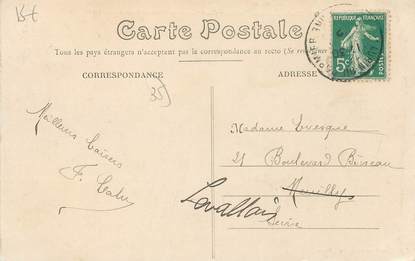 15€
Carte Postale
Tous les pays étrangers n'acceptent pas la correspondance au recto (Se
CORRESPONDANCE
ADRESSE
RÉPUBLIQUE FRANÇAISE
5c
POSTES
35
Meilleurs baisers
F.
Madame
21 Boulevard Bineau
Neuilly
Levallois
Seine